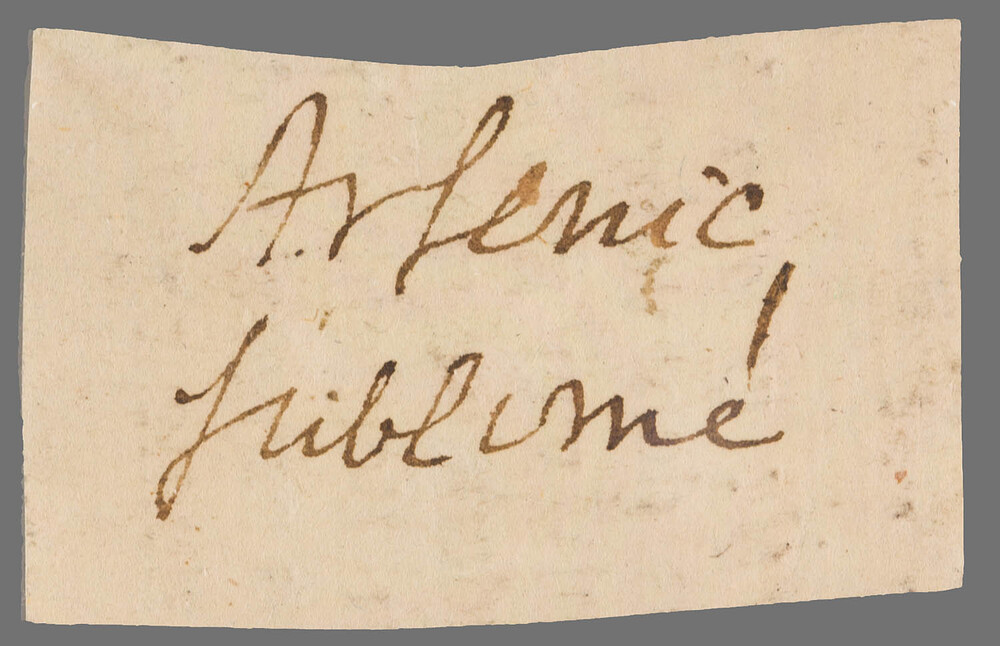 Arſenic
ſublimé